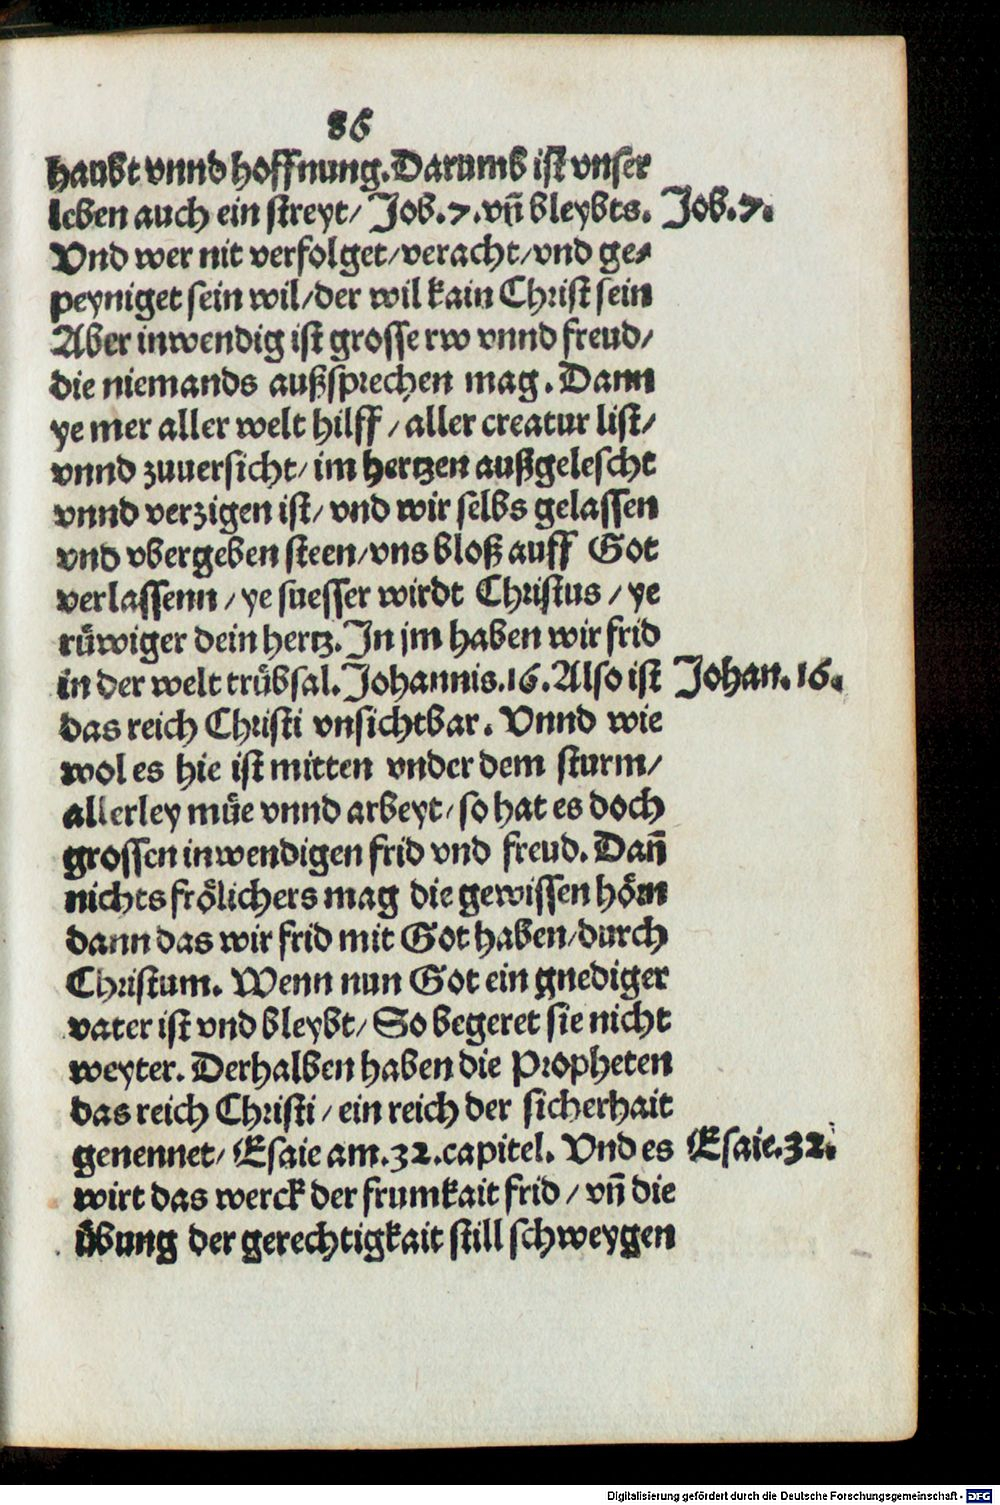 86
haubt vnnd hoffnung. Darumb ist vnser
leben auch ein streyt/ Job.7.vn̄ bleybts. Job.7.
Vnd wer nit verfolget/veracht/vnd ge⸗
peyniget sein wil/der wil kain Christ sein
Aber inwendig ist grosse rw vnnd freud/
die niemands außsprechen mag. Dann
ye mer aller welt hilff / aller creatur list/
vnnd zuuersicht/ im hertzen außgelescht
vnnd verzigen ist/ vnd wir selbs gelassen
vnd vbergeben steen/vns bloß auff Got
verlassenn / ye suesser wirdt Christus / ye
rüwiger dein hertz. In jm haben wir frid
in der welt trübsal. Johannis.16. Also ist Johan.16.
das reich Christi vnsichtbar. Vnnd wie
wol es hie ist mitten vnder dem sturm/
allerley müe vnnd arbeyt/ so hat es doch
grossen inwendigen frid vnd freud. Dan̄
nichts frölichers mag die gewissen hörn
dann das wir frid mit Got haben/durch
Christum. Wenn nun Got ein gnediger
vater ist vnd bleybt/ So begeret sie nicht
weyter. Derhalben haben die Propheten
das reich Christi / ein reich der sicherhait
genennet/ Esaie am.32.capitel. Vnd es Esaie.32.
wirt das werck der frumkait frid / vn̄ die
übung der gerechtigkait still schweygen
Digitalisierung gefördert durch die Deutsche Forschungsgemeinschaft - DFG